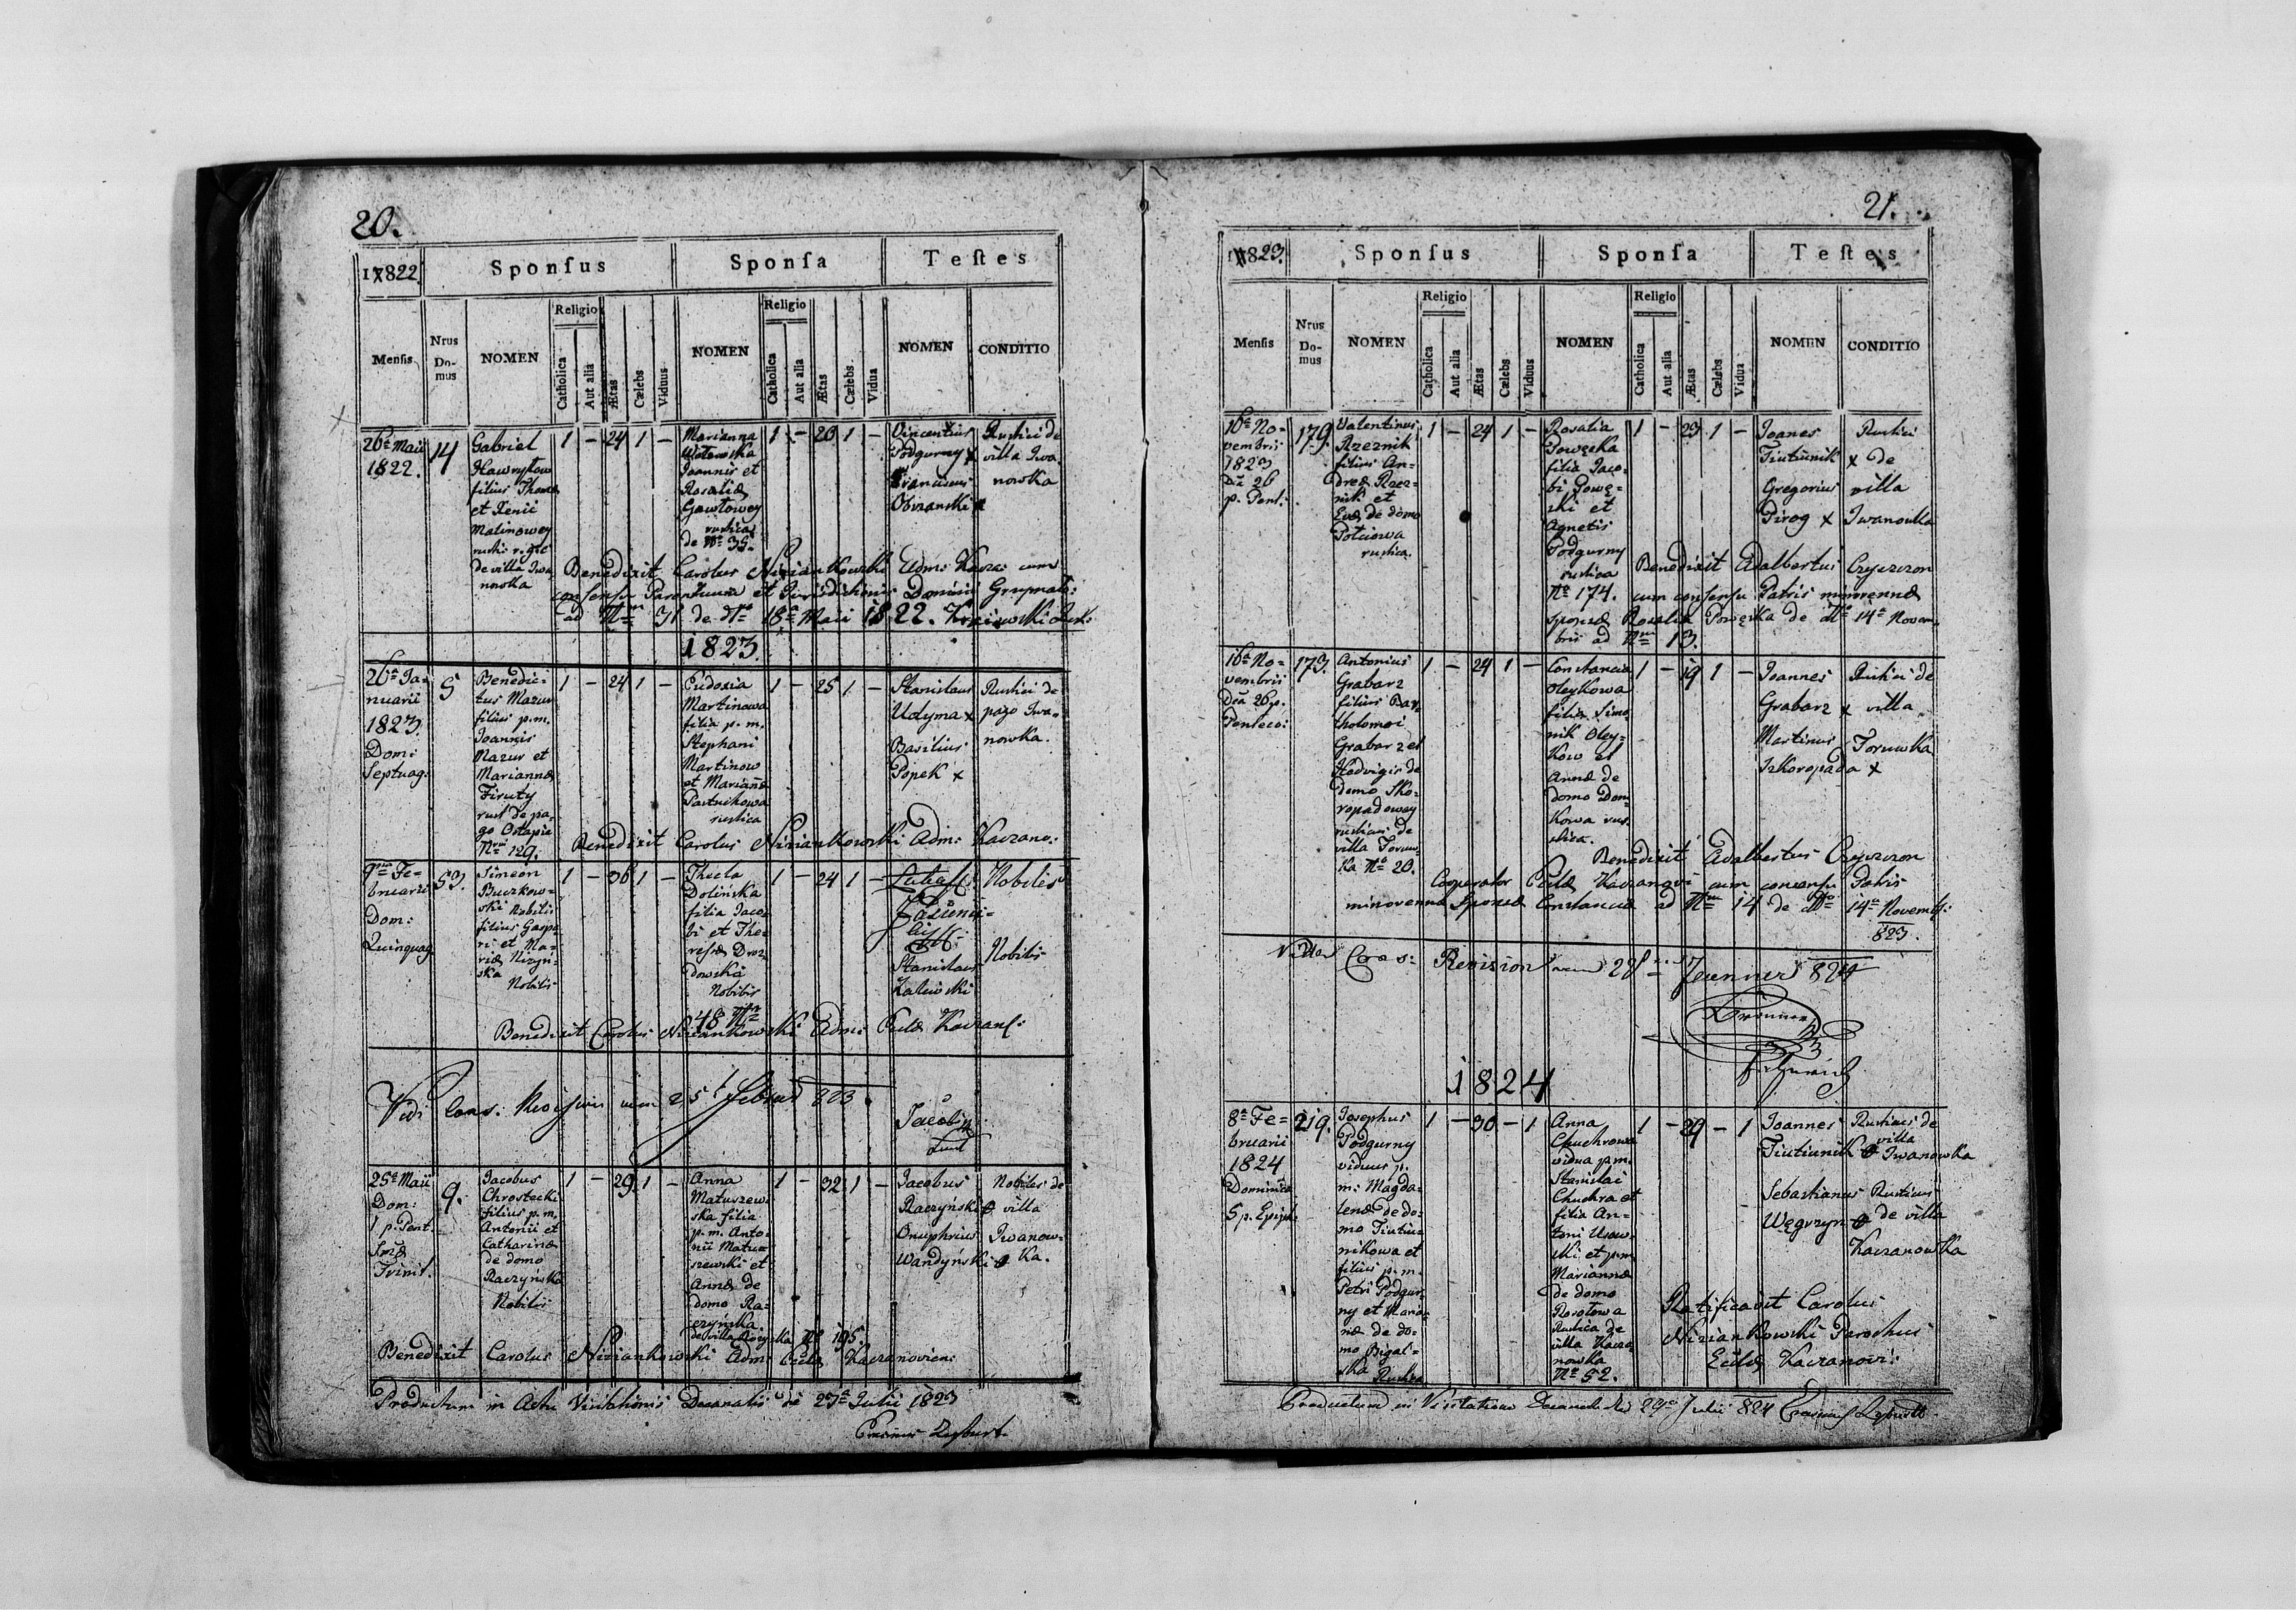 20.
17822.
Sponſus
Sponſa
Teſtes
Menſis
Nrus
Do-
mus
NOMEN
Religio
Catholica
Aut alia
Ætas
Cælebs
Viduus
NOMEN
Religio
Catholica
Aut alia
Ætas
Cælebs
Vidua
NOMEN
CONDITIO
26ª Maii
1822.
14
Gabriel
Hawryłow
filius Thomæ
et Xenii
Malinowey
de villa Iwa
nowka
1 – 24 1 –
Marianna
Joannis et
Rosaliæ
Gawłowey
rustica
de Nº 35.
1 – 20 1 –
Vincentius
Podgurny x
Franciscus
Rustici de
villa Iwa
nowka
Benedixit Carolus Niziankowski Adm: Kacza: cum
consensu Parentum et Jurisdictionis Dominii Grzymal:
ad Nrm 31 de dto 18ª Maii 1822.
1823.
26ª Ja-
nuarii
1823.
Dom:
Septuag:
5
Benedic-
tus Mazur
filius p.m.
Joannis
Mazur et
Mariannæ
Firuty
rust de pa-
go Ostapie
Nrm 129.
1 – 24 1 –
Eudoxia
Martinowa
filia p. m.
Stephani
Martinow
et Mariannæ
Pastuchowa
rustica
1 – 25 1 –
Stanislaus
Udyma x
Basilius
Popek x
Rustici de
pago Iwa-
nowka.
Benedixit Carolus Niziankowski Adm: Kaczano:
9na Fe-
bruarii
Dom:
Quinquag.
53.
Simeon
Buczkow-
ski Nobilis
filius Gaspa
ri et Ma-
riæ Nizyn-
ska
Nobilis
1 – 36 1 –
Thecla
Dolinska
filia Jaco-
bi et The-
resæ Droz
dowska
Nobilis
48 Nrm
1 – 24 1 –
Stanislaus
Zalewski
Nobilis
Nobilis
Benedixit Carolus Niziankowski Adm: Ecclæ Kaczano:
Vidi Cons: Revision vom 25t Februar 823
25ª Maii
Dom:
1 p. Pent.
Smæ
Trinit.
9.
Jacobus
Chrostecki
filius p. m.
Antonii et
Catharinæ
de domo
Raczyńska
Nobilis
1 – 29 1 –
Anna
Matuszew-
ska filia
p. m. Anto-
nii Matu-
szewski et
Annæ de
domo Ra-
czyńska
Nº 195.
1 – 32 1 –
Jacobus
Raczyński
Onuphrius
Wandyński
Nobiles de
villa
Iwanow-
ka.
Benedixit Carolus Niziankowski Adm: Ecclæ Kaczanovien:
Productum in Actu Visitationis Decanalis die 27ª Julii 1823
21.
1823.
Sponſus
Sponſa
Teſtes
Menſis
Nrus
Do-
mus
NOMEN
Religio
Catholica
Aut alia
Ætas
Cælebs
Viduus
NOMEN
Religio
Catholica
Aut alia
Ætas
Cælebs
Vidua
NOMEN
CONDITIO
16ª No-
vembris
1823
Dca 26
p. Pent:
179.
Valentinus
Rzeznik
filius An-
dreæ Rzez-
nik et
Evæ de domo
rustica.
1 – 24 1 –
Rosalia
Powęska
filia Jaco-
bi Powę-
ski et
Agnetis
Podgurny
rustica
Nº 174.
1 – 23 1 –
Joanes
Tiutiunik x
Gregorius
Pirog x
Rustici
de
villa
Iwanowka
Benedixit Adalbertus Czyczron
cum consensu Patris minorennæ
sponsæ Rosaliæ Powęska de dto 14ª Novem-
bris ad Nrm 13.
16ª No-
vembris
Dca 26 p.
Penteco:
173.
Antonius
Grabarz
filius Bar-
tholomei
Grabarz et
Hedvigis de
domo Sko-
ropadowey
rusticus de
villa Torow-
ka Nº 20.
1 – 24 1 –
Constancia
Oleykowa
filia Simo-
nik Oley-
kow et
Annæ de
domo Dom-
kowa rus-
tica.
1 – 19 1 –
Joannes
Grabarz x
Martinus
Szkoropada x
Rustici de
villa
Torowka
Benedixit Adalbertus Czyczron
Cooperator Ecclæ Kaczanov: cum consensu Patris
minorennæ Sponsæ Constanciæ ad Nrm 14 de dto 14ª Novemb:
823.
Vidi Cons: Revision vom 28 Jenner 824
1824
8ª Fe-
bruarii
1824
Dominica
5 p. Epiph:
219.
Josephus
Podgurny
viduus p.
m: Magda-
lenæ de do-
mo Tiutiu-
nikowa et
filius p. m.
Petri Podgur-
ny et Maria-
næ de do-
mo Bigal-
ska Rustica
1 – 30 – 1
Anna
Chuchrowa
vidua p.m.
Stanislai
Chuchra et
filia An-
toni Usow-
ski et p.m.
Mariannæ
de domo
Rorotowa
Rustica de
villa Kacza
nowka
Nº 52.
1 – 29 – 1
Joannes
Tiutiunik
Sebastianus
Węgrzyn
Rusticus de
villa
Iwanowka
Rusticus
de villa
Kaczanowka
Ratificavit Carolus
Niziankowski Parochus
Ecclæ Kaczanovi:
Productum in Visitatione Decanali die 29ª Julii 824